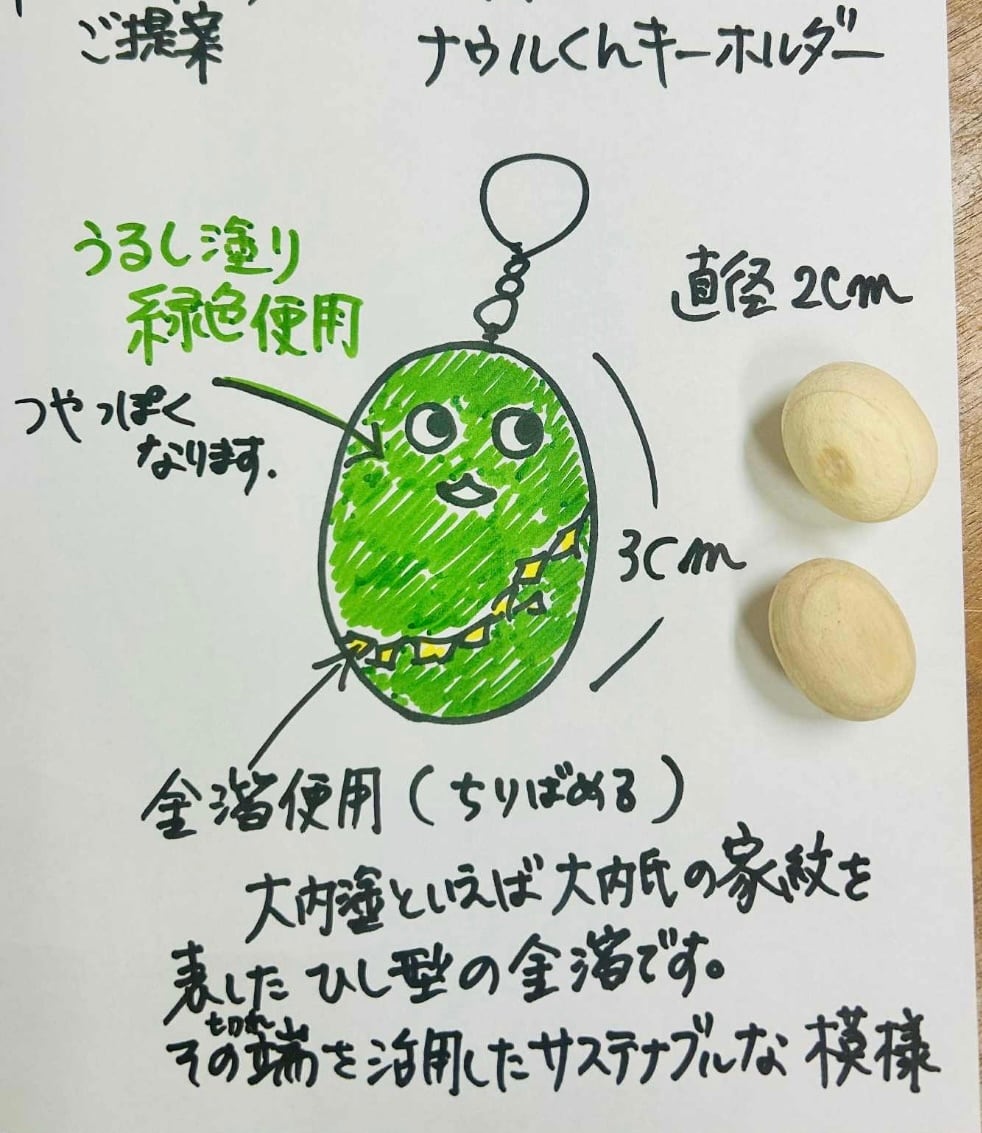 ご提案
ナウルくんキーホルダー
うるし塗り
緑色使用
つやっぽく
なります.
直径 2cm
3cm
金箔使用(ちりばめる)
大内塗といえば大内氏の家紋を
表した ひし型の金箔です。
切れ
その端を活用したサステナブルな 模様